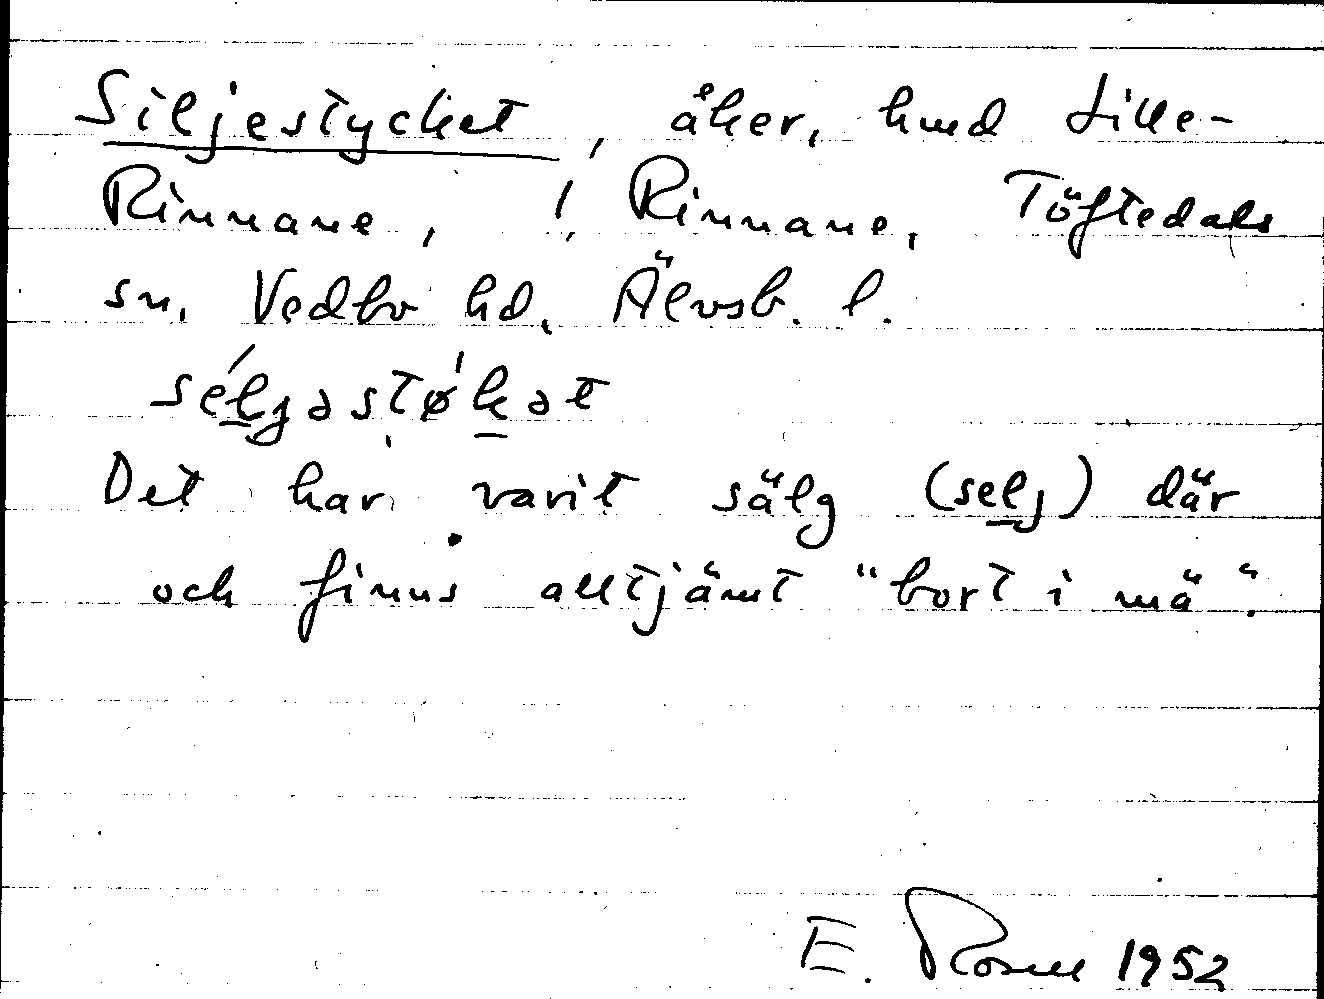 Siljestycket, åker, hmd Lille-
Rinnane, ! Rinnane, Töftedals
sn, Vedbo hd, Älvsb. l.
séljəstø̀kət
Det har varit sälg (selj) där
och finns alltjämt "bort i mä".
E. Rosell 1952